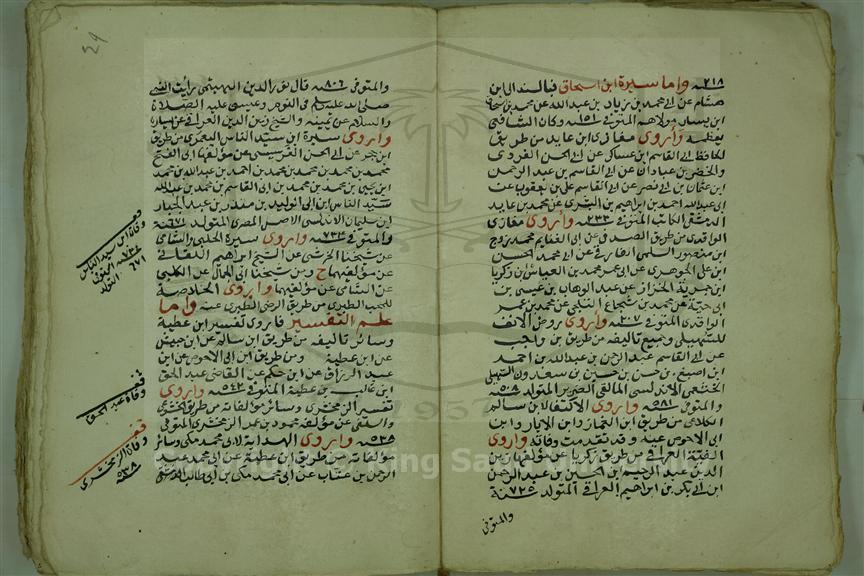 ٢١٨ واما سيرة ابن اسحاق فبالسند الى ابن
هشام عن ابى محمد بن زياد بن عبد الله عن محمد بن اسحاق
ابن يسار مولاهم المتوفى ١٥١ وكان الشافعى
يعظمه وأروى مغازى ابن عايد من طريق
الحافظ ابى القاسم ابن عساكر عن ابى الحسن الفروى
والخضر بن عبادان عن ابى القاسم بن عبد الرحمن
ابن عثمان بن ابى نصر عن ابى القاسم على بن يعقوب عن
ابى عبد الله احمد بن ابراهيم بن البشرى عن محمد بن عايد
الدمشقى الكاتب المتوفى ٢٣٣ وأروى مغازى
الواقدى من طريق الصدفى عن ابى الغنايم محمد بن
ابن منصور السلمى عن ابى محمد الحسن
ابن على الجوهرى عن ابى عمر محمد بن العباس بن زكريا
ابن الخزاز عن عبد الوهاب بن عيسى بن
ابى حية عن محمد بن شجاع الثلجى عن محمد بن عمر
الواقدى المتوفى ٢٠٧ وأروى روض الانف
للسهيلى وجميع تاليفه من طريق بن واجب
عن ابى القاسم عبد الرحمن بن عبد الله بن احمد
ابن اصبغ بن حسن بن حسين بن سعدون السهيلى
الخثعمى الاندلسى المالقى الضرير المتولد ٥٠٨
والمتوفى ٥٨١ واروى الاكتفا لابن سالم
الكلاعى من طريق ابن الغماز وابن الابار وابن
ابى الاحوص عنه وقد تقدمت وفاته واروى
الفية العراقى من طريق زكريا عن مؤلفها زين
الدين عبد الرحيم ابن الحسين بن عبد الرحمن
ابن ابى بكر بن ابراهيم العراقى المتولد ٧٢٥ سنة
والمتوفى
٤٩
والمتوفى ٨٠٦ قال نور الدين الهيثمى رأيت النبى
صلى الله عليه وسلم فى النوم وعيسى عليه الصلاة
والسلام عن يمينه والشيخ زين الدين العراقى عن يساره
واروى سيرة ابن سيد الناس اليعمرى من طريق
ابن حجر عن ابى الحسن الفرسيسى عن مؤلفها ابى الفتح
محمد بن محمد بن محمد بن محمد بن احمد بن عبد الله بن محمد
ابن يحيى بن محمد بن محمد بن ابى القاسم بن محمد بن عبد الله
سيد الناس ابن ابى الوليد بن منذر بن عبد الجبار
ابن سليمان الاندلسى الاصل المصرى المتولد ٦٧١
والمتوفى ٧٣٤ واروى سيرة الحلبى والشامى
عن شيخنا الخرشى عن الشيخ ابراهيم اللقانى
عن مؤلفيهما ح وعن شيخنا ابى الجمال عن الكلبى
عن الشامى عن مؤلفيهما واروى الخلاصة
للمحب الطبرى من طريق الرضى الطبرى عنه واما
علم التفسير فاروى تفسير ابن عطية
وسائر تاليفه من طريق ابن سالم عن ابن حبيش
عن ابن عطية ومن طريق ابن ابى الاحوص عن ابن
عبد الرزاق عن ابن حكم عن القاضى عبد الحق
ابن غالب بن عطية المتوفى ٥٤٢ واروى
تفسير الزمخشرى وسائر مؤلفاته من طريق
والسلفى عن مؤلفه محمود بن عمر الزمخشرى المتوفى
٥٣٨ واروى الهداية لابى محمد مكى وسائر
مؤلفاته من طريق ابن عطية عن ابى محمد عبد
الرحمن بن عتاب عن ابى محمد مكى بن ابى طالب
قف
وفاة ابن سيد الناس
٧٣٤ المتوفى
٦٧١ التولد
قف
وفاة عبد الحق
قف
وفاة الزمخشرى
٥٣٨
1957
Copyright © King Saud University